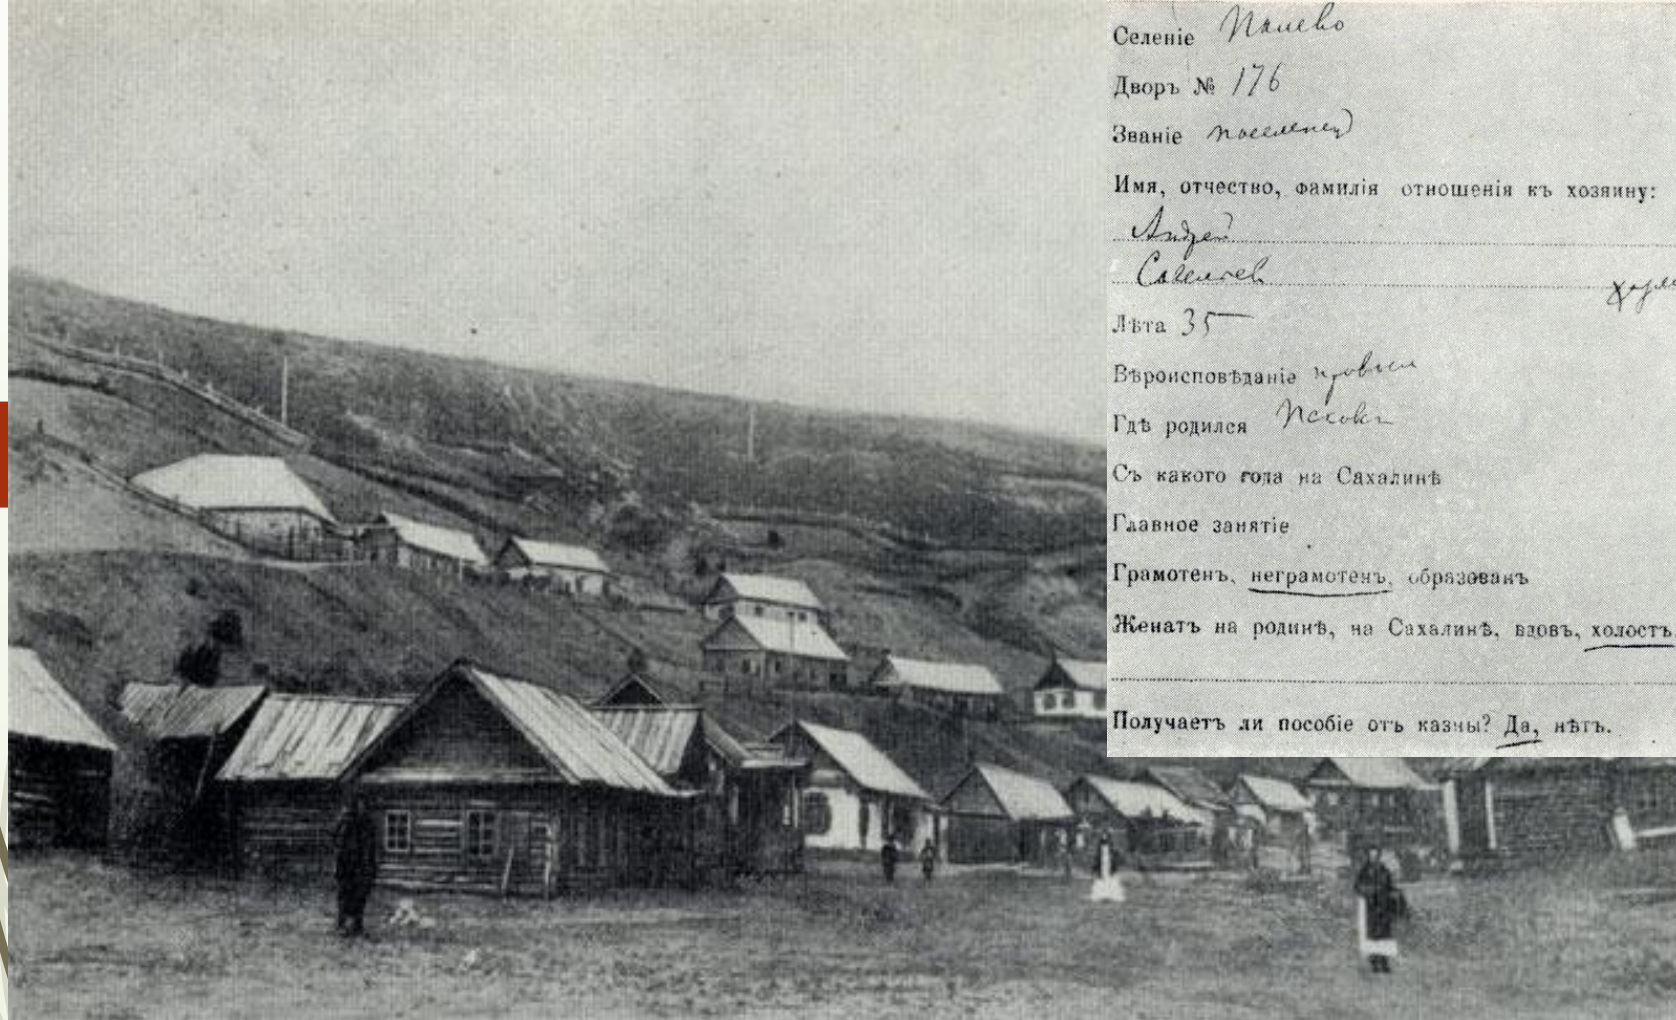 Селеніе Палево
Дворъ № 176
Званіе поселенец
Имя, отчество, фамилія отношенія къ хозяину:
Андрей
Савельев
Лѣта 35
Вѣроисповѣданіе правосл
Гдѣ родился Псковъ
Съ какого года на Сахалинѣ
Главное занятіе
Грамотенъ, неграмотенъ, образованъ
Женатъ на родинѣ, на Сахалинѣ, вдовъ, холостъ
Получаетъ ли пособіе отъ казны? Да, нѣтъ.